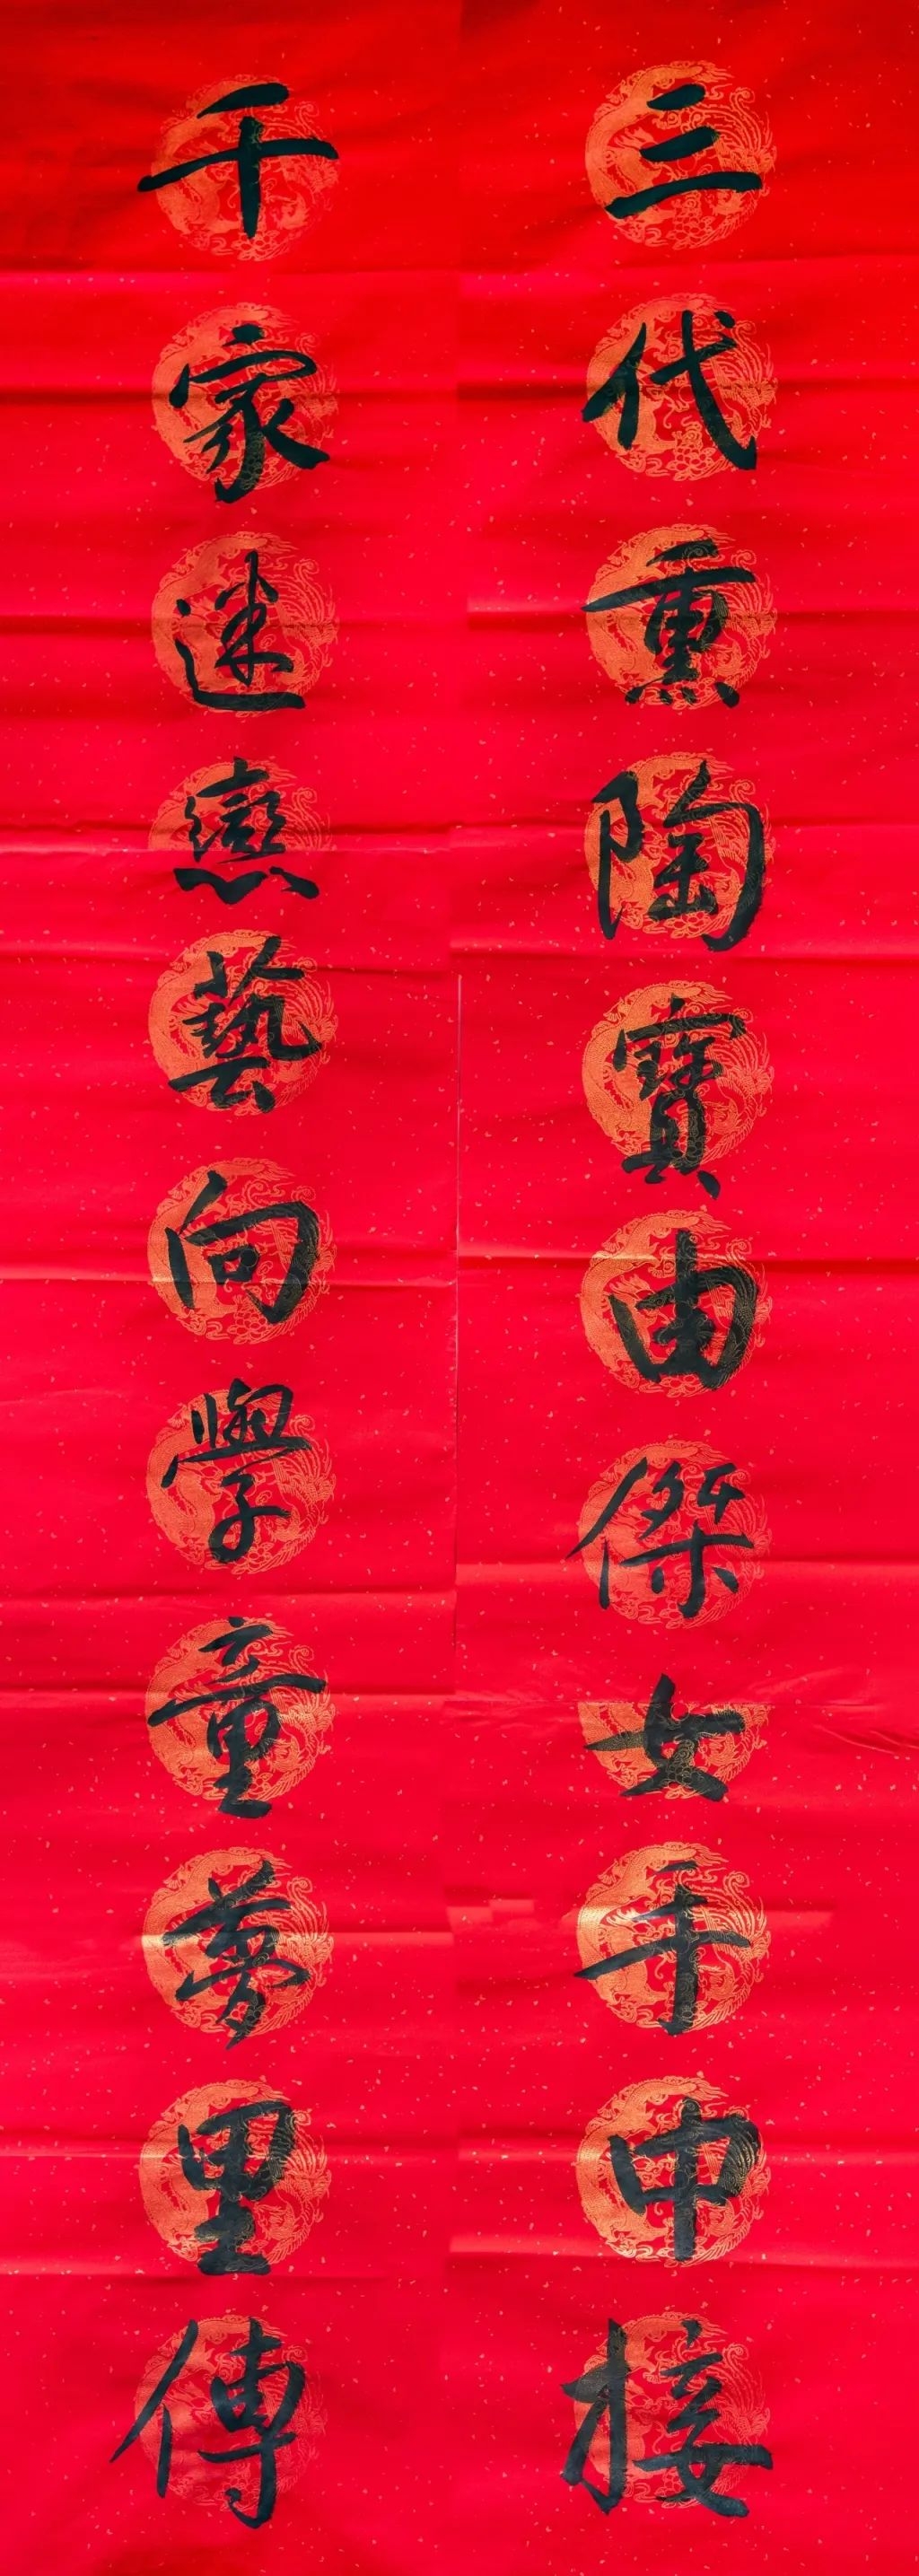 三代熏陶寶由傑女手中接
千家迷戀藝向學童夢里傳